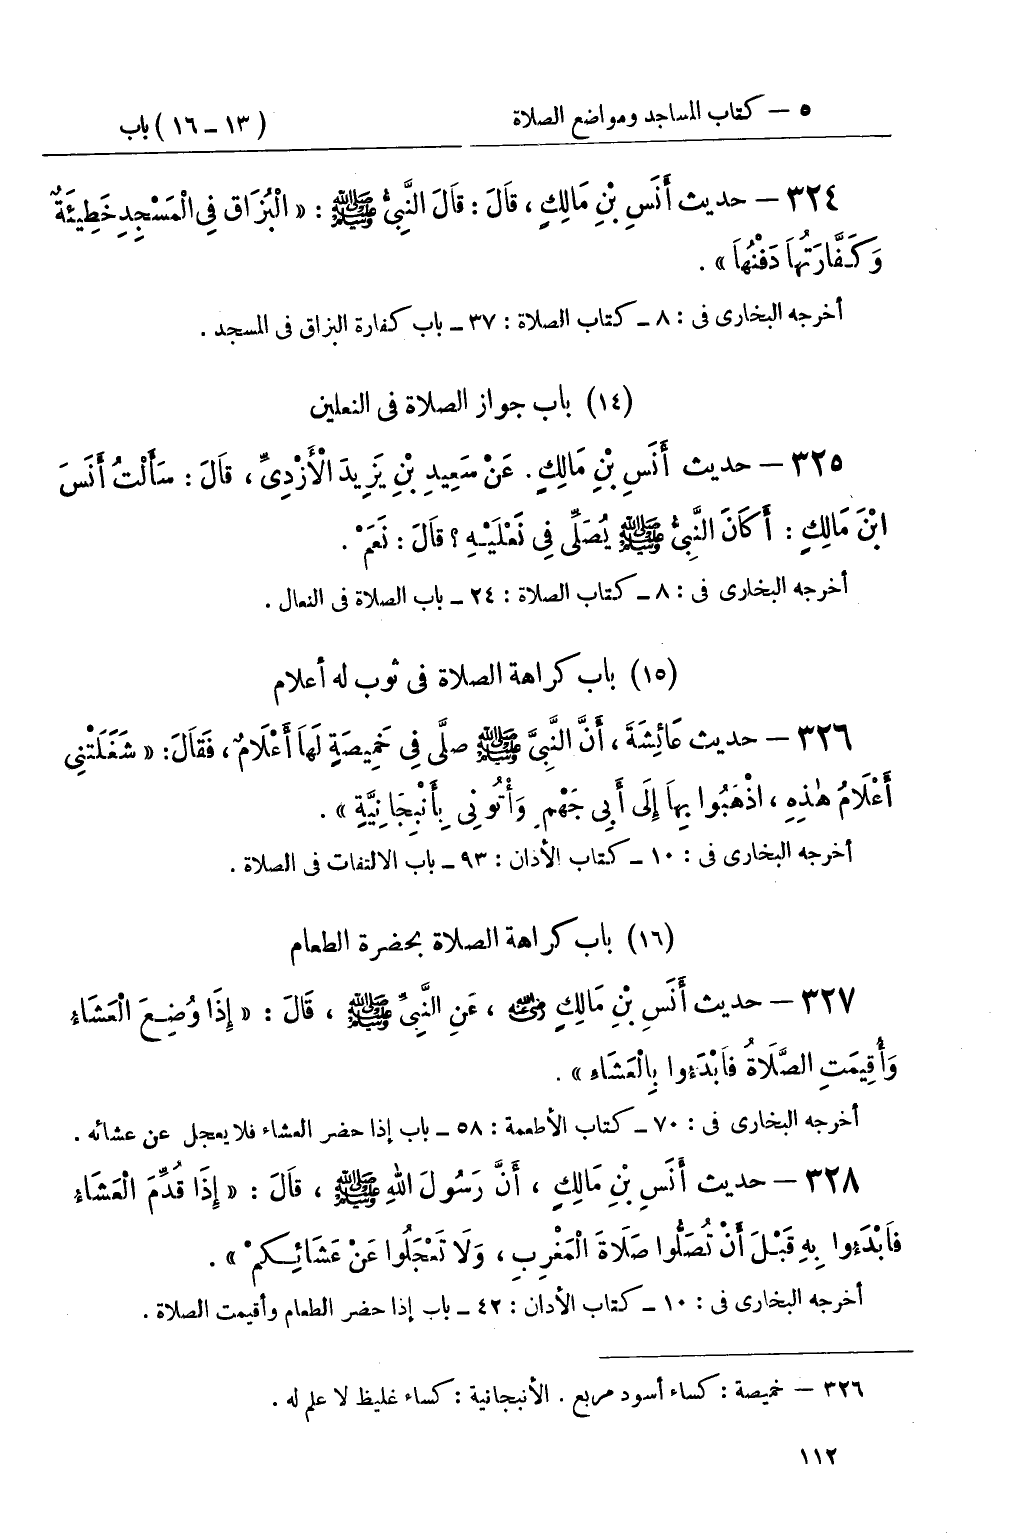 ٥ – كتاب المساجد ومواضع الصلاة (١٣ – ١٦) باب
٣٢٤ – حديث أَنَسِ بْنِ مَالِكٍ ، قَالَ : قَالَ النَّبِيُّ ﷺ : « الْبُزَاقُ فِي الْمَسْجِدِ خَطِيئَةٌ
وَكَفَّارَتُهَا دَفْنُهَا » .
أخرجه البخارى فى : ٨ – كتاب الصلاة : ٣٧ – باب كفارة البزاق فى المسجد .
(١٤) باب جواز الصلاة فى النعلين
٣٢٥ – حديث أَنَسِ بْنِ مَالِكٍ . عَنْ سَعِيدِ بْنِ يَزِيدَ الْأَزْدِىِّ ، قَالَ : سَأَلْتُ أَنَسَ
ابْنَ مَالِكٍ : أَكَانَ النَّبِيُّ ﷺ يُصَلِّى فِى نَعْلَيْهِ ؟ قَالَ : نَعَمْ .
أخرجه البخارى فى : ٨ – كتاب الصلاة : ٢٤ – باب الصلاة فى النعال .
(١٥) باب كراهة الصلاة فى ثوب له أعلام
٣٢٦ – حديث عَائِشَةَ ، أَنَّ النَّبِيَّ ﷺ صلَّى فِي خَمِيصَةٍ لَهَا أَعْلَامٌ ، فَقَالَ: « شَغَلَتْنِي
أَعْلَامُ هٰذِهِ ، اذْهَبُوا بِهَا إِلَى أَبِي جَهْمٍ وَأْتُونِي بِأَنْبِجَانِيَّةٍ » .
أخرجه البخارى فى : ١٠ – كتاب الأذان : ٩٣ – باب الالتفات فى الصلاة .
(١٦) باب كراهة الصلاة بحضرة الطعام
٣٢٧ – حديث أَنَسِ بْنِ مَالِكٍ رضي الله عنه ، عَنِ النَّبِيِّ ﷺ ، قَالَ : « إِذَا وُضِعَ الْعَشَاءُ
وَأُقِيمَتِ الصَّلَاةُ فَابْدَءُوا بِالْعَشَاءِ » .
أخرجه البخارى فى : ٧٠ – كتاب الأطعمة : ٥٨ – باب إذا حضر العشاء فلا يعجل عن عشائه .
٣٢٨ – حديث أَنَسِ بْنِ مَالِكٍ ، أَنَّ رَسُولَ اللهِ ﷺ ، قَالَ : « إِذَا قُدِّمَ الْعَشَاءُ
فَابْدَءُوا بِهِ قَبْلَ أَنْ تُصَلُّوا صَلَاةَ الْمَغْرِبِ ، وَلَا تَعْجَلُوا عَنْ عَشَائِكمْ » .
أخرجه البخارى فى : ١٠ – كتاب الأذان : ٤٢ – باب إذا حضر الطعام وأقيمت الصلاة .
٣٢٦ – خميصة : كساء أسود مربع . الأنبجانية : كساء غليظ لا علم له .
١١٢